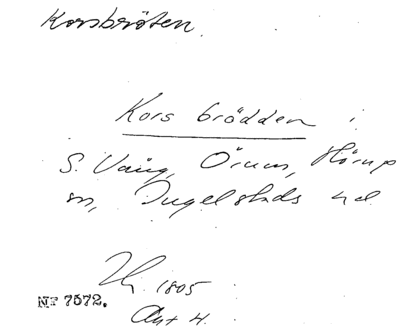 Korsbröten.
Kors brödden i
S. Vång, Örum, Hörup
sn, Ingelstads hd
1805
Akt 4.
No 7572.